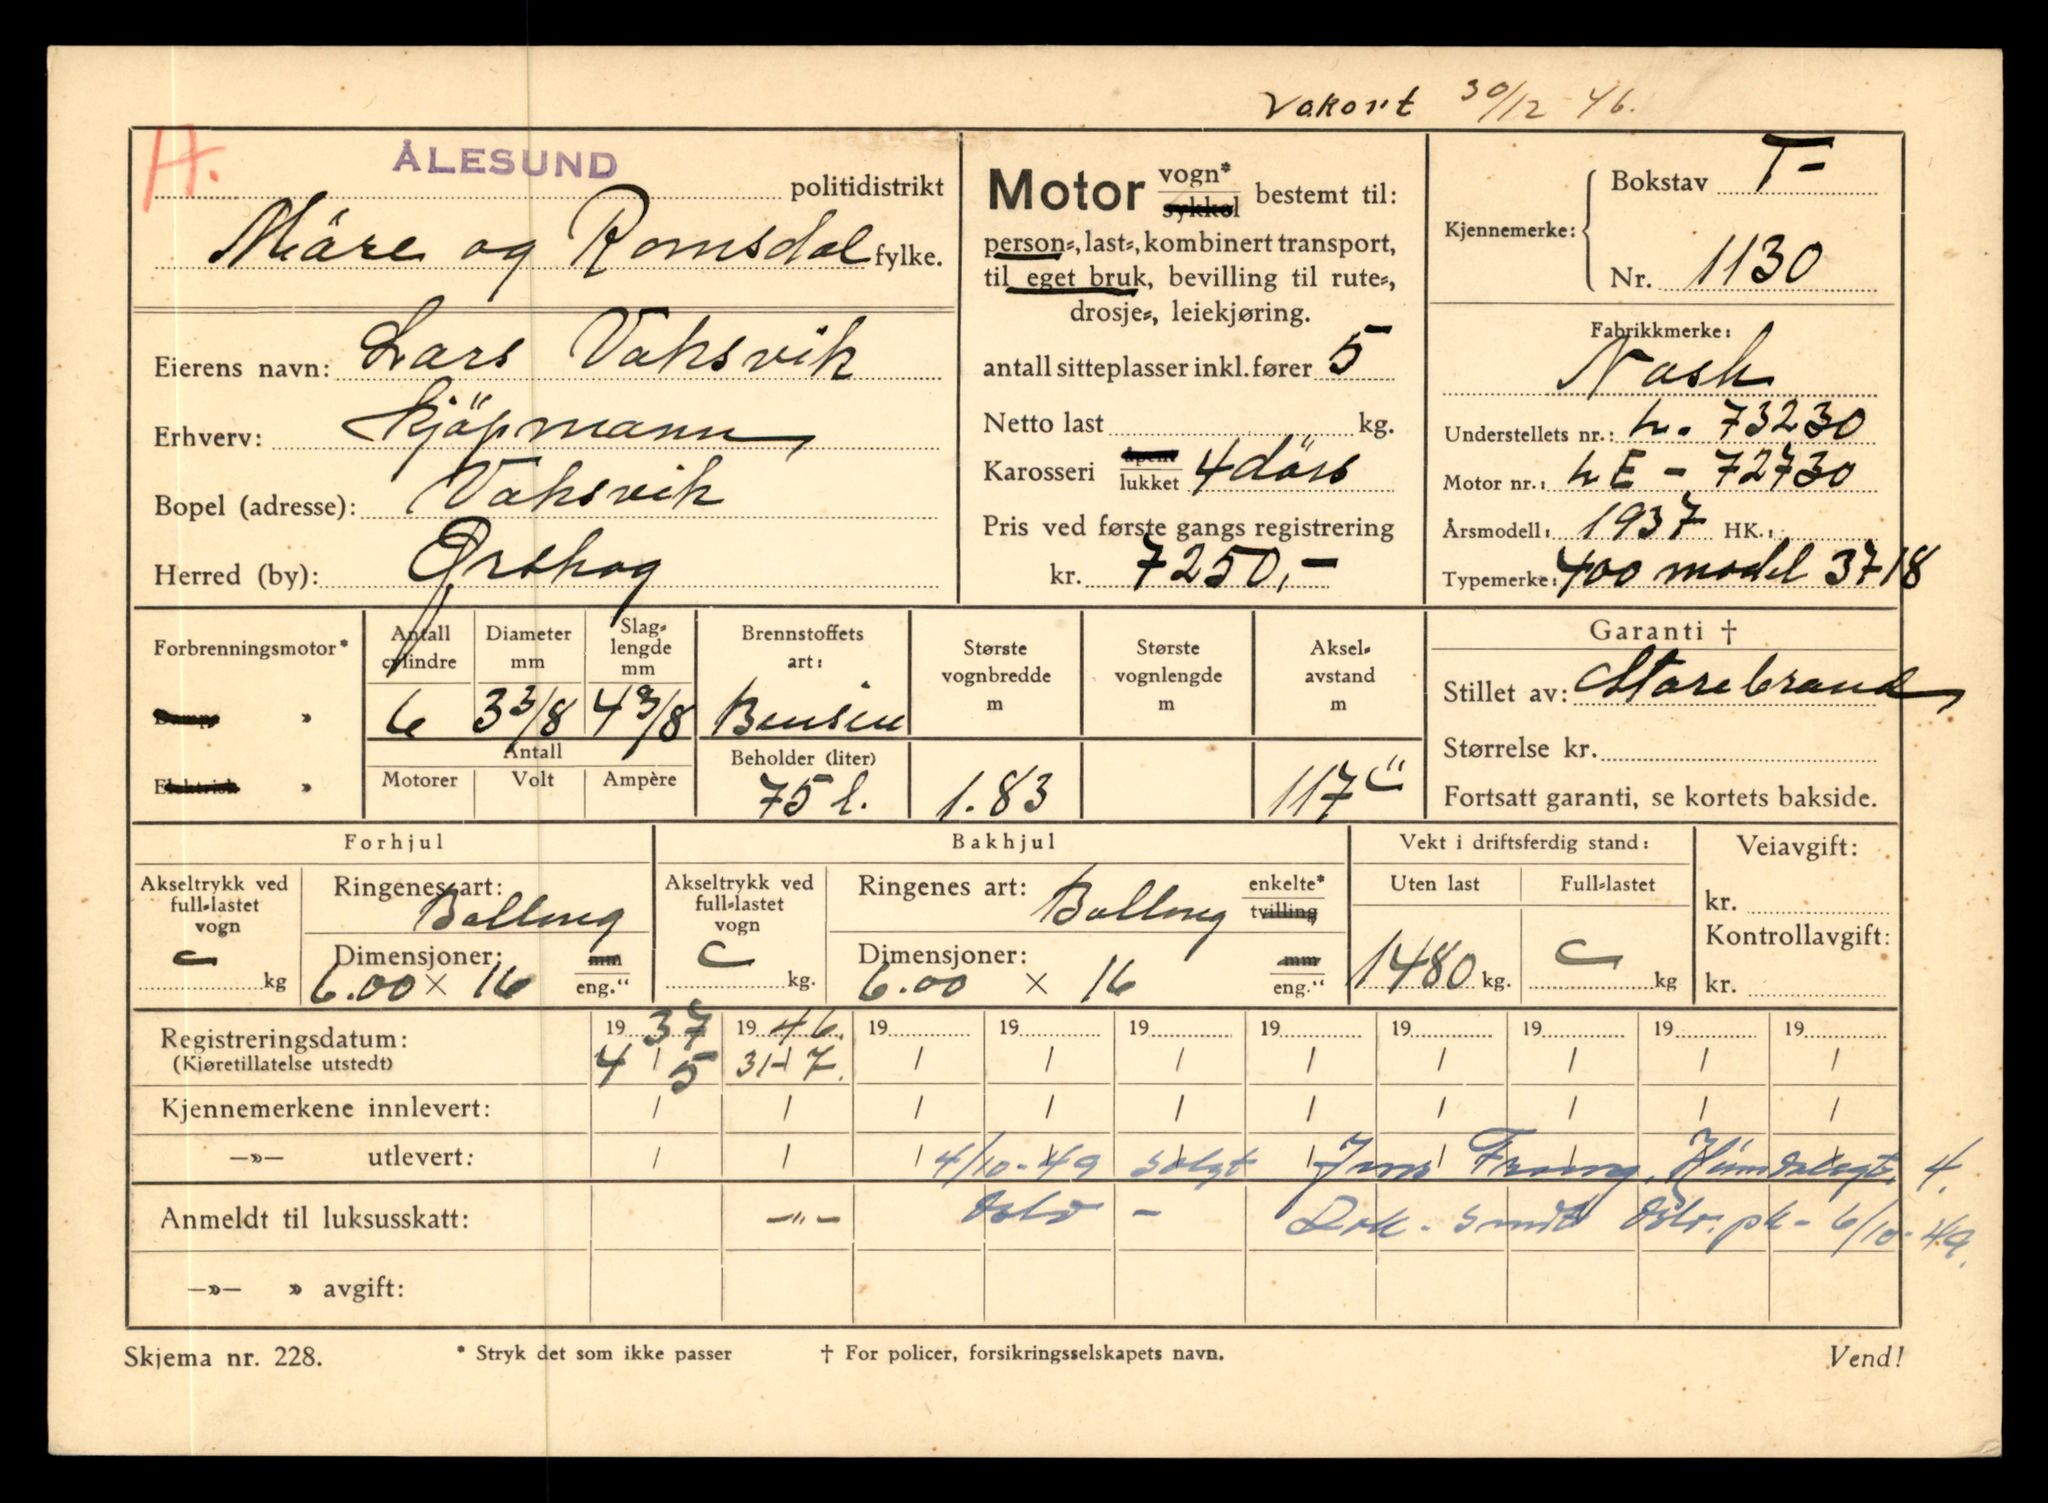 Vakort 30/12 - 46.
H.
ÅLESUND politidistrikt
Märe og Romsdal fylke.
Eierens navn: Lars Vaksvik
Erhverv: Kjöpmann,
Bopel (adresse): Vaksvik
Herred (by): Ørskog
Motor vogn* sykkel bestemt til:
person-, last-, kombinert transport,
til eget bruk, bevilling til rute-,
drosje-, leiekjøring.
antall sitteplasser inkl. fører 5
Netto last kg.
Karosseri åpent lukket 4 dörs
Pris ved første gangs registrering
kr. 7250,-
Kjennemerke: Bokstav T-
Nr. 1130
Fabrikkmerke:
Nash
Understellets nr.: L. 73230
Motor nr.: LE - 72730
Årsmodell: 1937 HK.:
Typemerke: 400 model 3718
Forbrenningsmotor*
Damp- »
Elektrisk »
Antall cylindre 6
Diameter mm 3 3/8
Slaglengde mm 4 3/8
Antall
Motorer Volt Ampère
Brennstoffets art: Bensin
Beholder (liter) 75 l.
Største vognbredde m 1.83
Største vognlengde m
Akselavstand m 117"
Garanti †
Stillet av: Storebrand
Størrelse kr.
Fortsatt garanti, se kortets bakside.
Forhjul
Akseltrykk ved full-lastet vogn kg
Ringenes art: Ballong
Dimensjoner: 6.00 × 16 mm eng."
Bakhjul
Akseltrykk ved full-lastet vogn kg.
Ringenes art: Ballong enkelte* tvilling
Dimensjoner: 6.00 × 16 mm eng."
Vekt i driftsferdig stand:
Uten last 1480 kg.
Full-lastet kg
Veiavgift:
kr.
Kontrollavgift:
kr.
Registreringsdatum: 19 37 19 46. 19 19 19 19 19 19 19 19
(Kjøretillatelse utstedt) 4 / 5 31-7. / / / / / / / /
Kjennemerkene innlevert: / / / / / / / / / /
—»— utlevert: 4/10-49 solgt Jens Frang, 4.
Anmeldt til luksusskatt: -"- Oslo - Dok. sendt Oslo pk - 6/10-49.
—»— » avgift:
Skjema nr. 228. * Stryk det som ikke passer † For policer, forsikringsselskapets navn. Vend!